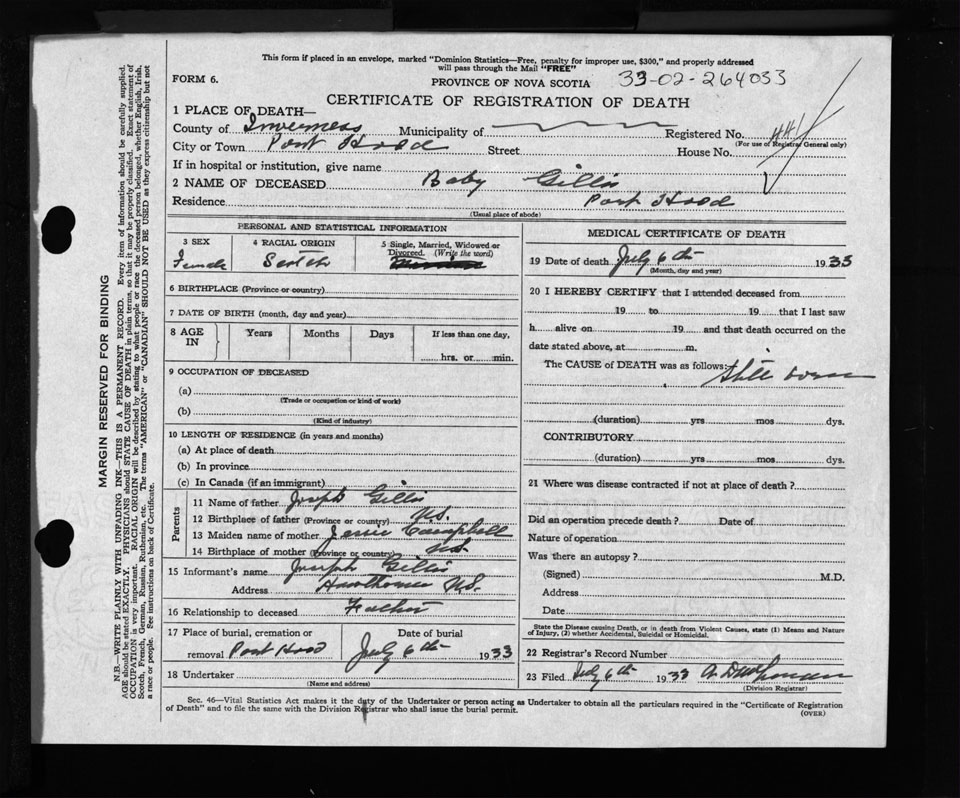 This form if placed in an envelope, marked "Dominion Statistics—Free, penalty for improper use, $300," and properly addressed
will pass through the Mail "FREE"
FORM 6.
PROVINCE OF NOVA SCOTIA
33-02-264033
CERTIFICATE OF REGISTRATION OF DEATH
1 PLACE OF DEATH—
County of Inverness Municipality of Registered No. 441
(For use of Registrar General only)
City or Town Port Hood Street House No.
If in hospital or institution, give name
2 NAME OF DECEASED Baby Gillis
Residence Port Hood
(Usual place of abode)
PERSONAL AND STATISTICAL INFORMATION
3 SEX
Female
4 RACIAL ORIGIN
Scotch
5 Single, Married, Widowed or
Divorced. (Write the word)
6 BIRTHPLACE (Province or country)
7 DATE OF BIRTH (month, day and year)
8 AGE IN Years Months Days If less than one day,
hrs. or min.
9 OCCUPATION OF DECEASED
(a)
(Trade or occupation or kind of work)
(b)
(Kind of industry)
10 LENGTH OF RESIDENCE (in years and months)
(a) At place of death
(b) In province
(c) In Canada (if an immigrant)
Parents
11 Name of father Joseph Gillis
12 Birthplace of father (Province or country) N.S.
13 Maiden name of mother Campbell
14 Birthplace of mother (Province or country) N.S.
15 Informant's name Joseph Gillis
Address Hawthorne N.S.
16 Relationship to deceased Father
17 Place of burial, cremation or
removal Port Hood
Date of burial
July 6th 1933
18 Undertaker
(Name and address)
MEDICAL CERTIFICATE OF DEATH
19 Date of death July 6th 1933
(Month, day and year)
20 I HEREBY CERTIFY that I attended deceased from
19 to 19 that I last saw
h alive on 19 and that death occurred on
date stated above, at m.
The CAUSE of DEATH was as follows: Still born
(duration) yrs mos dys.
CONTRIBUTORY
(duration) yrs mos dys.
21 Where was disease contracted if not at place of death?
Did an operation precede death? Date of
Nature of operation
Was there an autopsy?
(Signed) M.D.
Address
Date
State the Disease causing Death, or in death from Violent Causes, state (1) Means and Nature
of Injury, (2) whether Accidental, Suicidal or Homicidal.
22 Registrar's Record Number
23 Filed July 6th 1933
(Division Registrar)
Sec. 46—Vital Statistics Act makes it the duty of the Undertaker or person acting as Undertaker to obtain all the particulars required in the "Certificate of Registration
of Death" and to file the same with the Division Registrar who shall issue the burial permit.
(OVER)
MARGIN RESERVED FOR BINDING
N.B.—WRITE PLAINLY WITH UNFADING INK—THIS IS A PERMANENT RECORD. Every item of information should be carefully supplied.
AGE should be stated EXACTLY. PHYSICIANS should STATE CAUSE OF DEATH in plain terms, so that it may be properly classified. Exact statement of
OCCUPATION is very important. RACIAL ORIGIN will be described by stating to what people or race the deceased person belonged, whether English, Irish,
Scotch, French, German, Russian, Ruthenian, etc. The terms "AMERICAN" or "CANADIAN" SHOULD NOT BE USED as they express citizenship but not
a race or people. See instructions on back of Certificate.